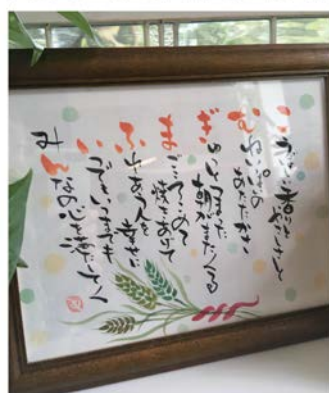 こうばしい香りとやさしさと
むねいっぱいの
あたたかさ
ぎゅっとつまった
朝がまたくる
まごころこめて
焼きあげて
ふれあう人を 幸せに
いつでもいつまでも
みんなの心を満たしてく